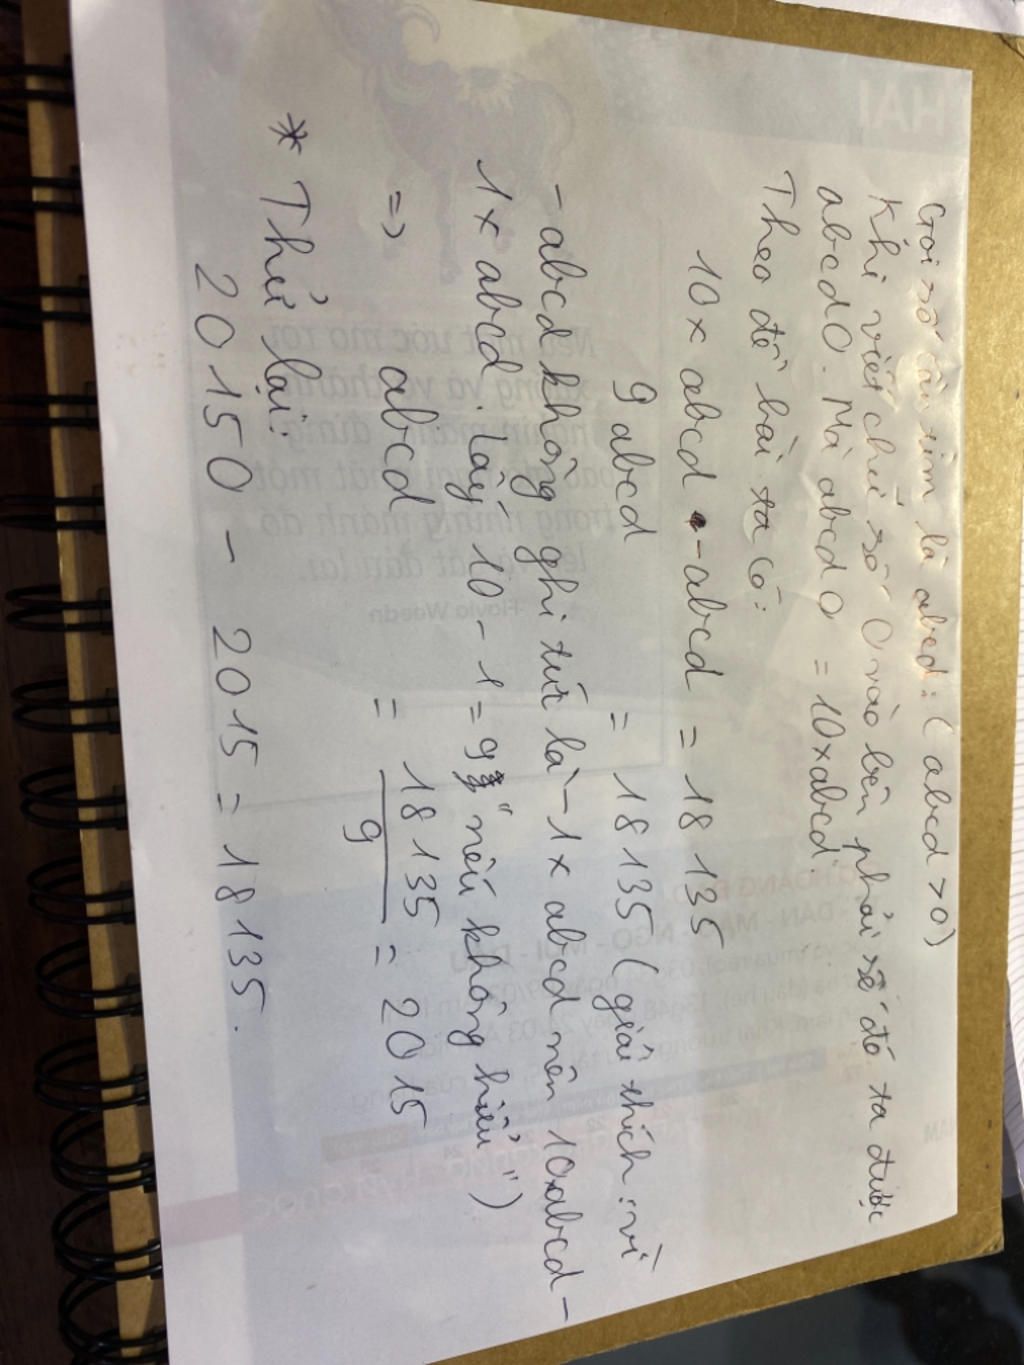 Gọi số cần tìm là abcd: (abcd > 0)
Khi viết chữ số 0 vào bên phải số đó ta được
abcd0. Mà abcd0 = 10 x abcd
Theo đề bài ta có:
10 x abcd - abcd = 18 135
9 abcd = 18 135 (giải thích: vì
- abcd không ghi tức là - 1 x abcd nên 10xabcd -
1 x abcd. Lấy 10 - 1 = 9 "nếu không hiểu")
=> abcd = 18 135 / 9 = 2015
* Thử lại:
20150 - 2015 = 18 135.